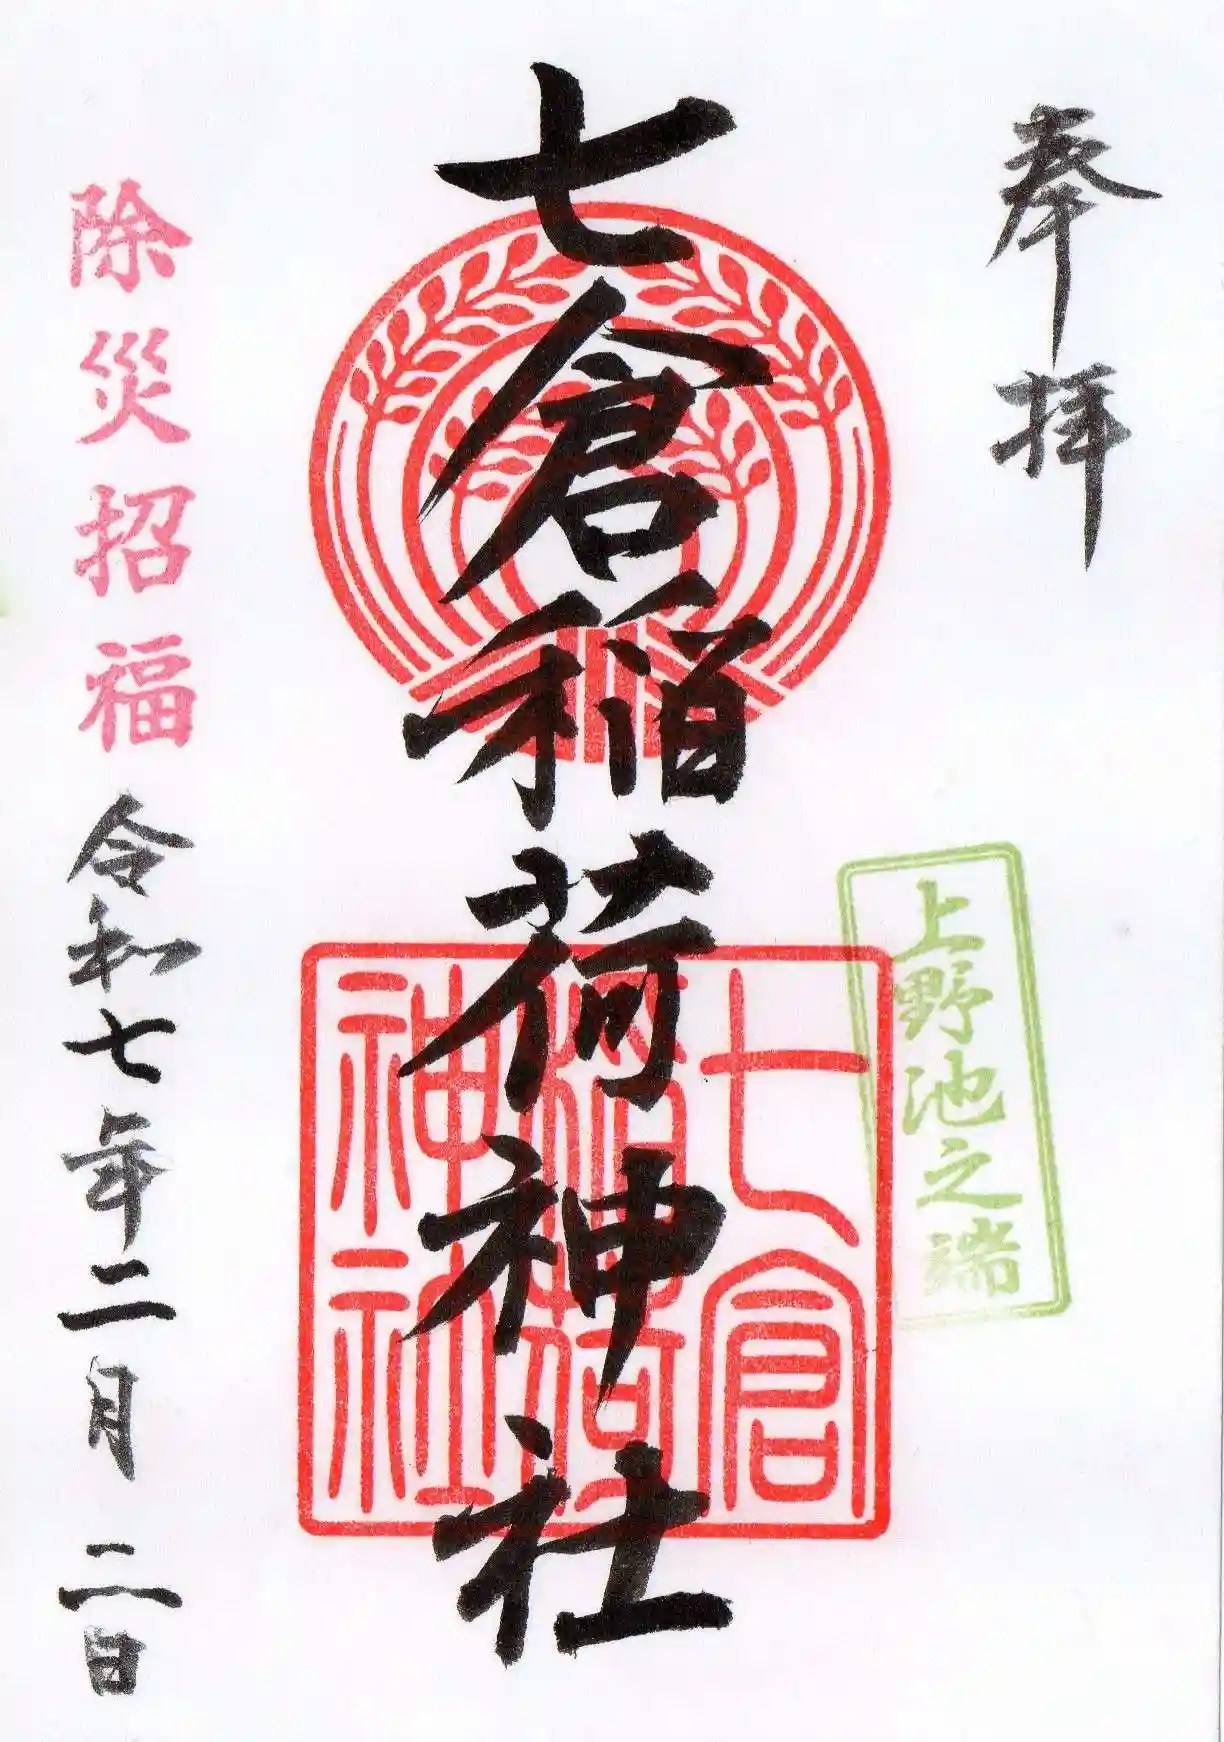 奉拝
上野池之端
七倉稲荷神社
七倉
稲荷
神社
除災招福
令和七年二月二日